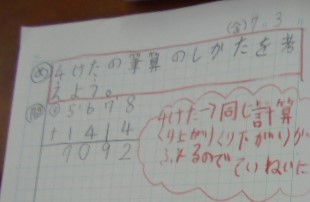 (金)7.3
め 4けたの筆算のしかたを考
えよう。
問 ② 5678
+1414
7092
4けた→同じ計算
くり上がり(くり下がり)が
ふえるのでていねいに